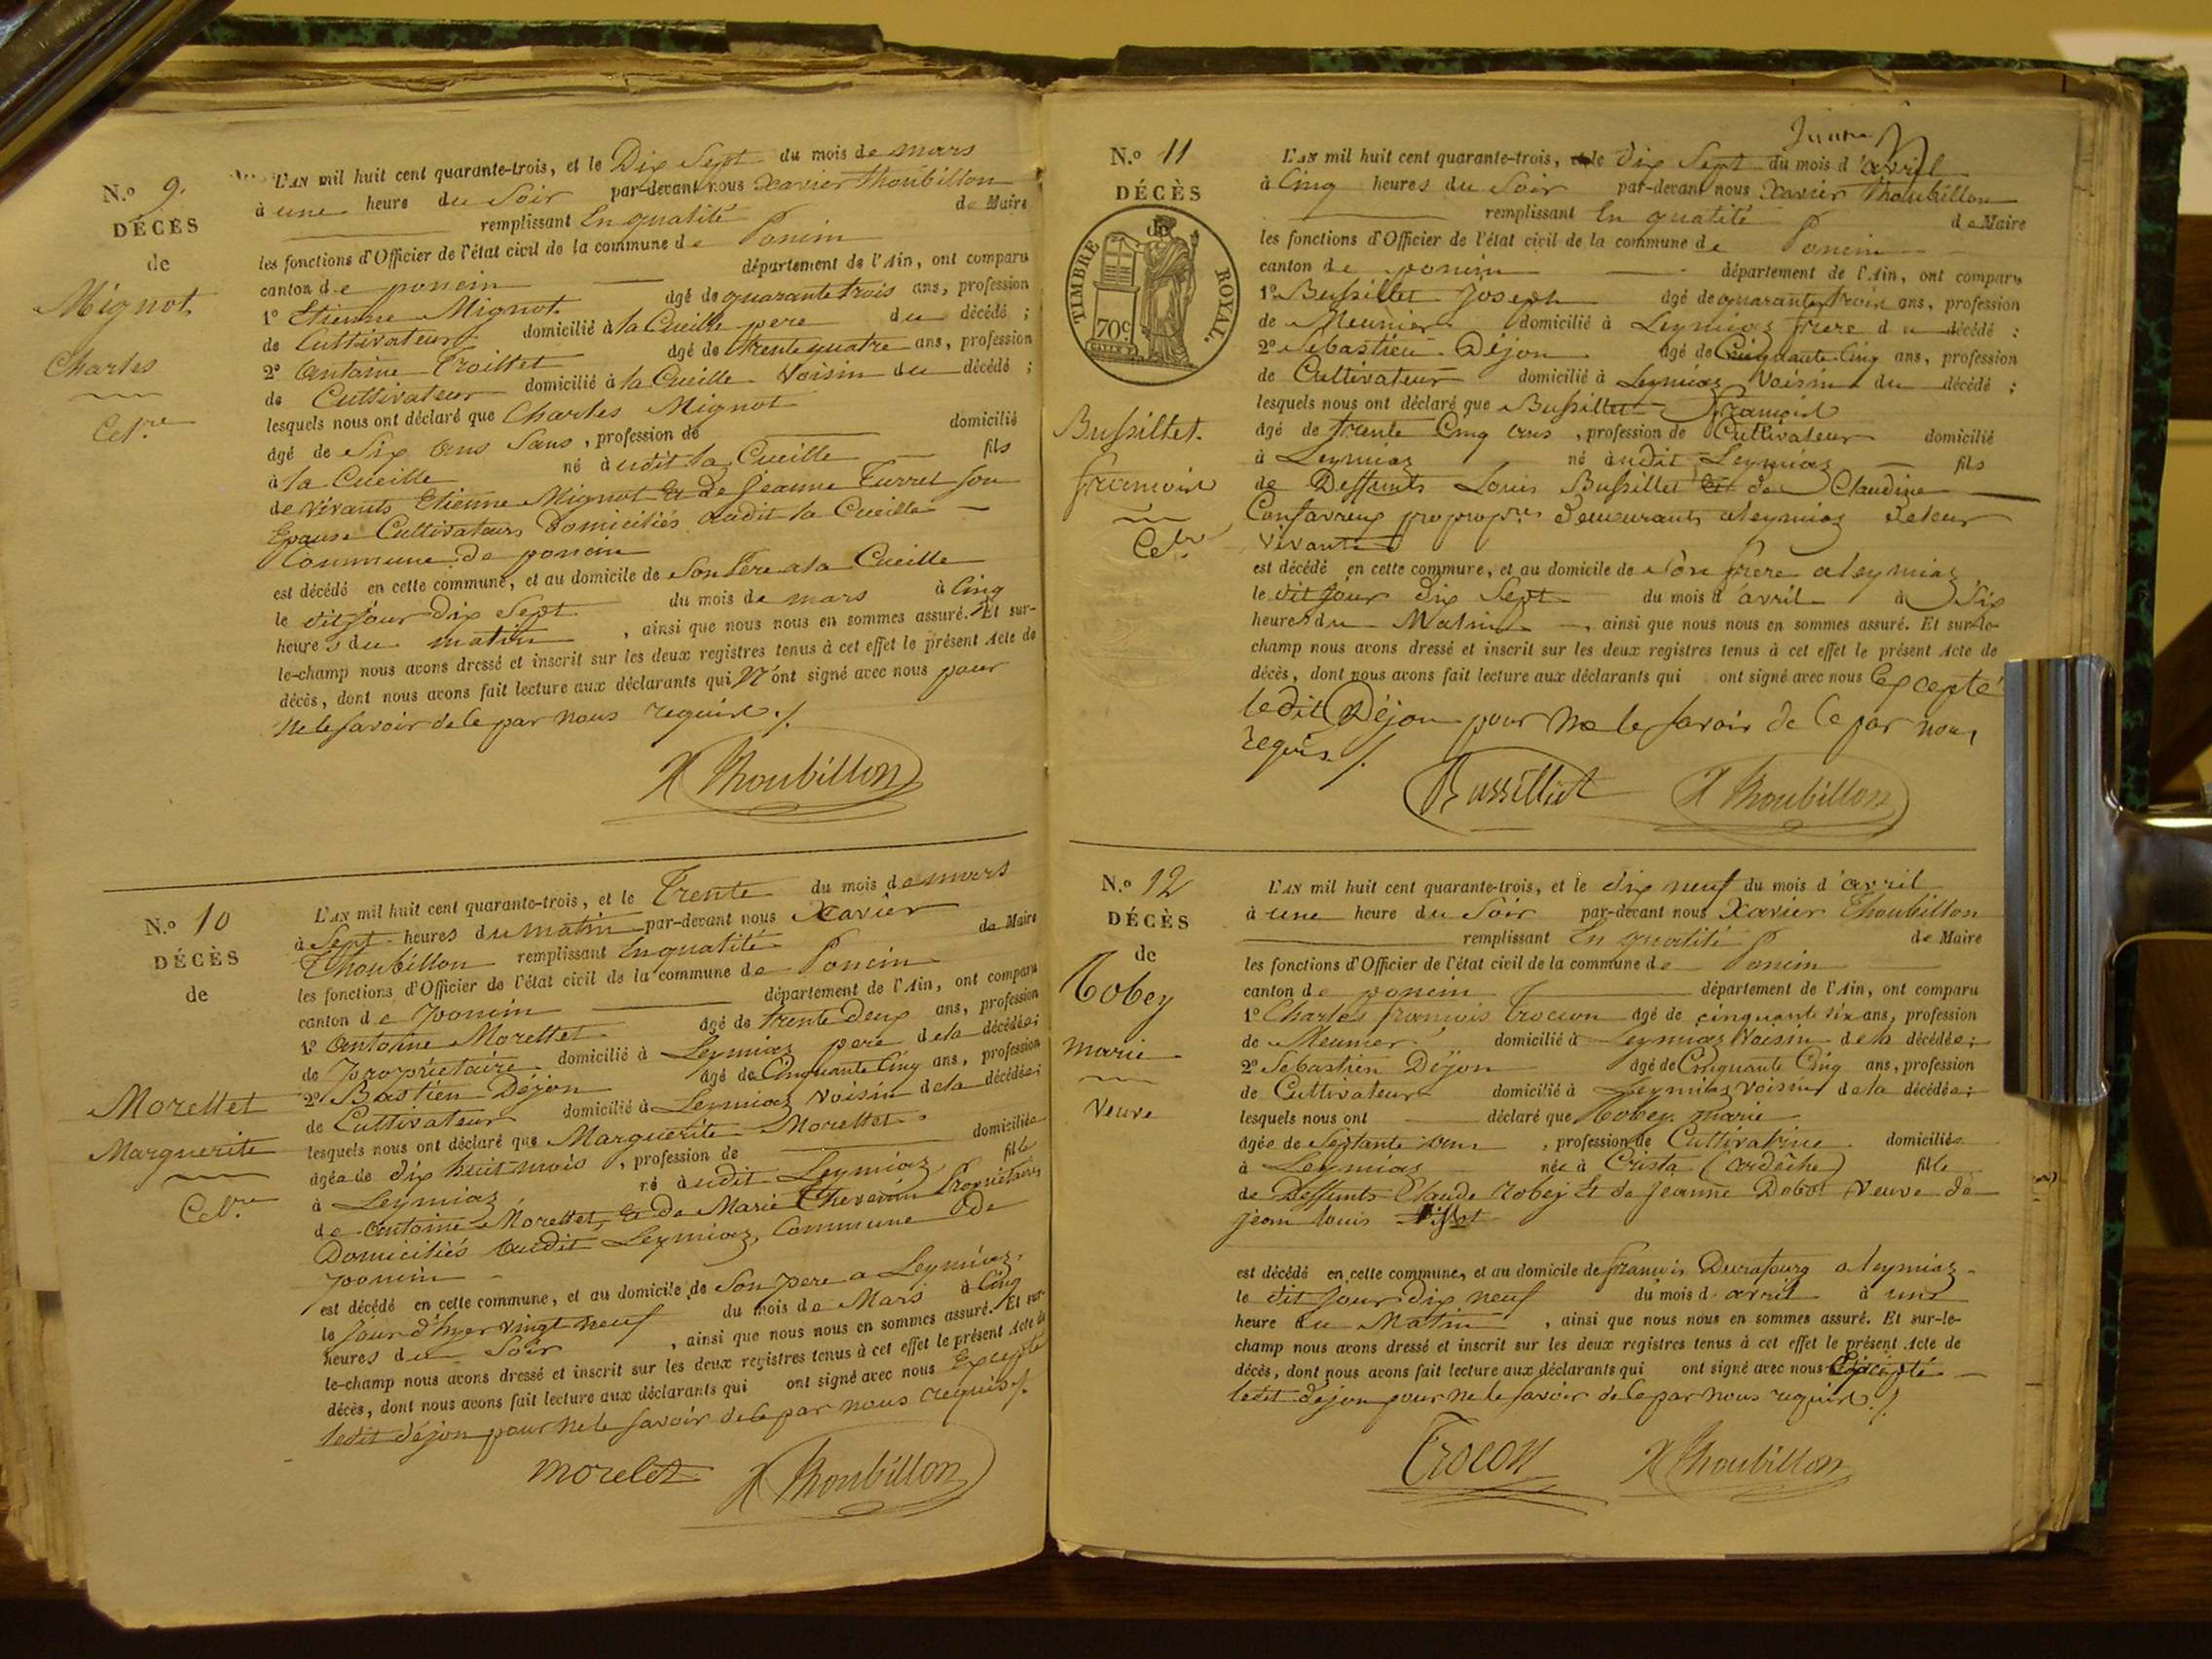 N.º 9.
DÉCÈS
de
Mignot
Charles
Cel.re
L'AN mil huit cent quarante-trois, et le Dix Sept du mois de mars
à une heure du Soir par-devant nous Xavier Thoubillon
remplissant En qualité de Maire
les fonctions d'Officier de l'état civil de la commune de Poncin
canton de poncin département de l'Ain, ont comparu
1º Etienne Mignot âgé de quarante trois ans, profession
de Cultivateur domicilié à la Cueille pere du décédé ;
2º Antoine Troillet âgé de trente quatre ans, profession
de Cultivateur domicilié à la Cueille Voisin du décédé ;
lesquels nous ont déclaré que Charles Mignot
âgé de Six ans Sans, profession de domicilié
à la Cueille né audit la Cueille fils
de vivants Etienne Mignot Et de Jeanne Turrel Son
Epouse Cultivateurs Domiciliés audit la Cueille
Commune de poncin
est décédé en cette commune, et au domicile de Son Père a la Cueille
le dit jour Dix Sept du mois de mars à Cinq
heures du matin, ainsi que nous nous en sommes assuré. Et sur-
le-champ nous avons dressé et inscrit sur les deux registres tenus à cet effet le présent Acte de
décès, dont nous avons fait lecture aux déclarants qui N'ont signé avec nous pour
Ne le Savoir de Ce par nous requis ./.
X Thoubillon
N.º 10
DÉCÈS
de
Morellet
Marguerite
Cel.re
L'AN mil huit cent quarante-trois, et le Trente du mois de mars
à Sept heures du matin par-devant nous Xavier
Thoubillon remplissant En qualité de Maire
les fonctions d'Officier de l'état civil de la commune de Poncin
canton de poncin département de l'Ain, ont comparu
1º Antoine Morellet âgé de trente Deux ans, profession
de Propriétaire domicilié à Leymiaz pere de la décédée ;
2º Bastien Déjon âgé de Cinquante Cinq ans, profession
de Cultivateur domicilié à Leymiaz voisin de la décédée ;
lesquels nous ont déclaré que Marguerite Morellet
âgée de dix huit mois, profession de domiciliée
à Leymiaz né audit Leymiaz fille
de Antoine Morellet, Et De Marie Thevenin Propriétaires
Domiciliés audit Leymiaz, Commune De
poncin
est décédé en cette commune, et au domicile de Son pere a Leymiaz
le jour d'hyer vingt neuf du mois de Mars à Cinq
heures du Soir, ainsi que nous nous en sommes assuré. Et sur-
le-champ nous avons dressé et inscrit sur les deux registres tenus à cet effet le présent Acte de
décès, dont nous avons fait lecture aux déclarants qui ont signé avec nous Excepté
ledit Déjon pour ne le Savoir de Ce par nous requis ./.
morelet X Thoubillon
N.º 11
DÉCÈS
TIMBRE ROYAL.
70c.
Bussillet.
françois
Cel.re
L'AN mil huit cent quarante-trois, et le dix Sept du mois d'avril
à Cinq heures du Soir par-devant nous Xavier Thoubillon
remplissant En qualité de Maire
les fonctions d'Officier de l'état civil de la commune de Poncin
canton de poncin département de l'Ain, ont comparu
1º Bussillet Joseph âgé de quarante trois ans, profession
de Meunier domicilié à Leymiaz frere du décédé ;
2º Sebastien Déjon âgé de Cinquante Cinq ans, profession
de Cultivateur domicilié à Leymiaz Voisin du décédé ;
lesquels nous ont déclaré que Bussillet François
âgé de trente Cinq ans, profession de Cultivateur domicilié
à Leymiaz né audit Leymiaz fils
de Deffunts Louis Bussillet Et de Claudine
demeurants a Leymiaz
vivants
est décédé en cette commune, et au domicile de Son frère a Leymiaz
le dit jour dix Sept du mois d'avril à Six
heures du Matin, ainsi que nous nous en sommes assuré. Et sur-le-
champ nous avons dressé et inscrit sur les deux registres tenus à cet effet le présent Acte de
décès, dont nous avons fait lecture aux déclarants qui ont signé avec nous Excepté
ledit Déjon pour Ne le Savoir de Ce par nous
requis ./.
Bussilliet X Thoubillon
N.º 12
DÉCÈS
de
Tobey
marie
Veuve
L'AN mil huit cent quarante-trois, et le dix neuf du mois d'avril
à une heure du Soir par-devant nous Xavier Thoubillon
remplissant En qualité de Maire
les fonctions d'Officier de l'état civil de la commune de Poncin
canton de poncin département de l'Ain, ont comparu
1º Charles françois Trocon âgé de cinquante six ans, profession
de Meunier domicilié à Leymiaz Voisin de la décédée ;
2º Sebastien Déjon âgé de Cinquante Cinq ans, profession
de Cultivateur domicilié à Leymiaz Voisin de la décédée ;
lesquels nous ont déclaré que Tobey marie
âgée de Septante ans, profession de Cultivatrice domiciliée
à Leymiaz née à Crista (ardèche) fille
de Deffunts Claude Tobey Et de Jeanne Dobot Veuve de
jean louis
est décédé en cette commune, et au domicile de françois Durafourg a leymiaz
le dit jour dix neuf du mois d'avril à une
heure du Matin, ainsi que nous nous en sommes assuré. Et sur-le-
champ nous avons dressé et inscrit sur les deux registres tenus à cet effet le présent Acte de
décès, dont nous avons fait lecture aux déclarants qui ont signé avec nous Excepté
ledit déjon pour ne le Savoir de Ce par nous requis ./.
Trocon X Thoubillon